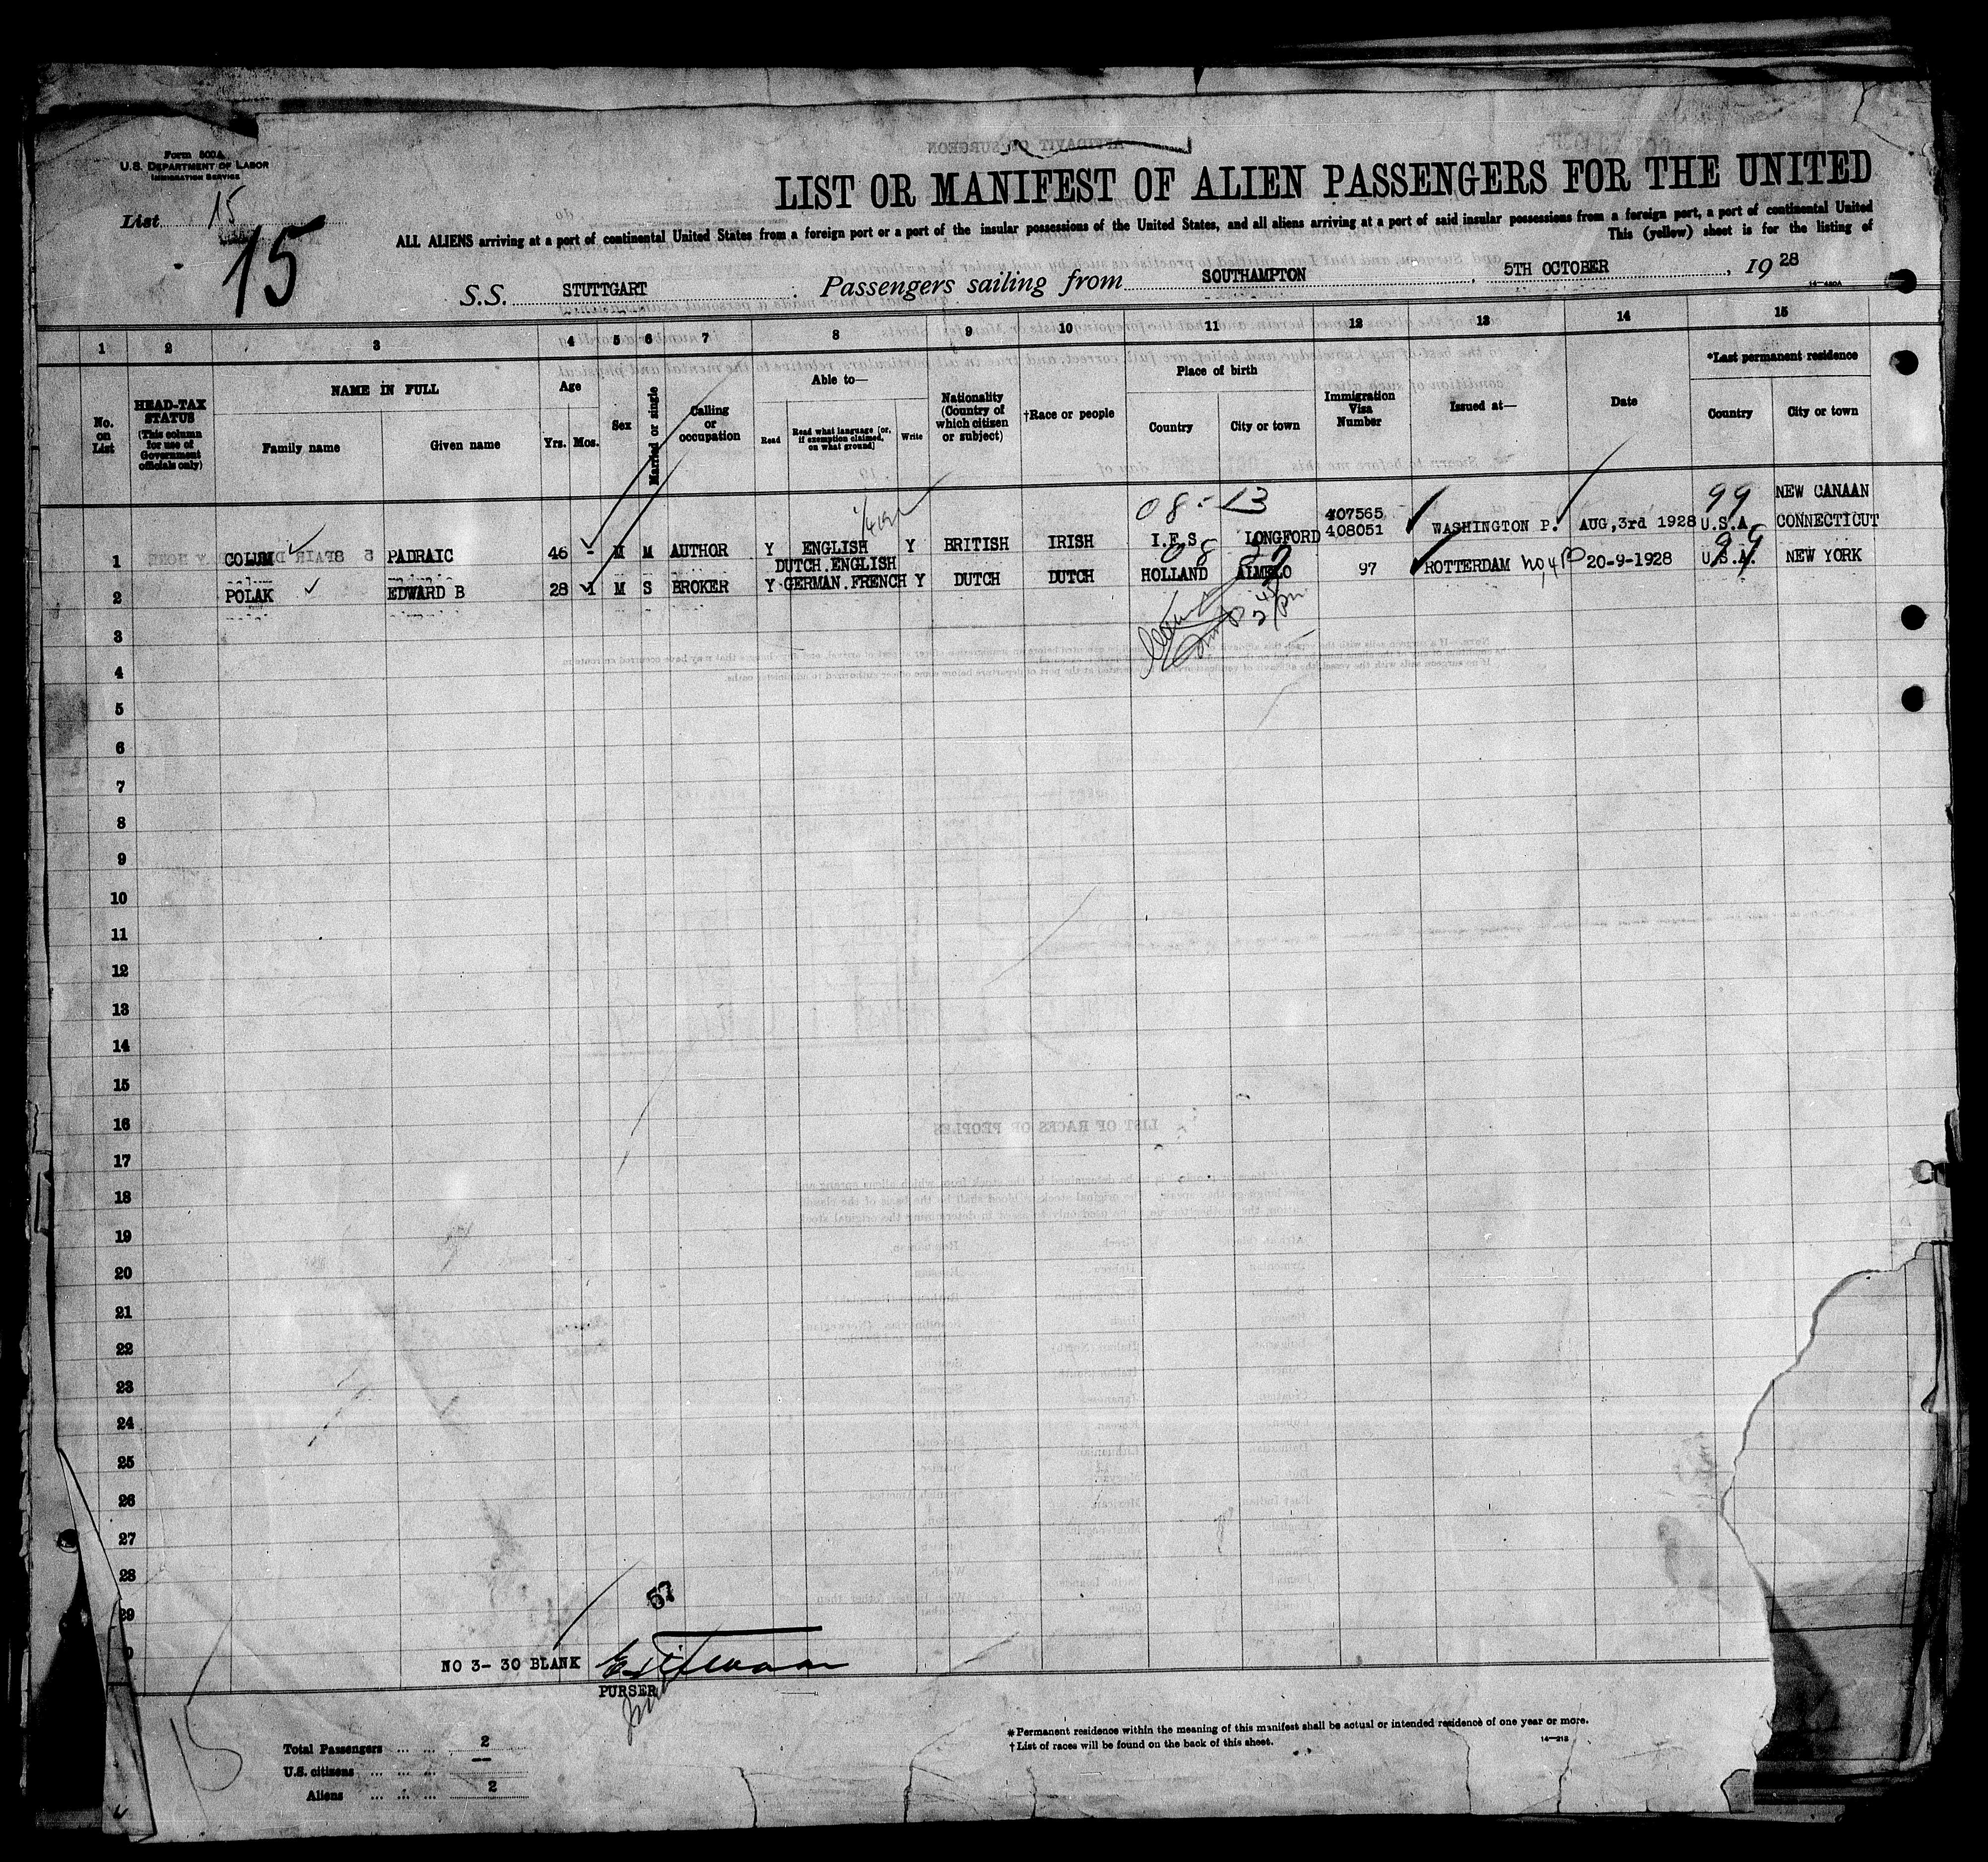 Form 500A
U.S. DEPARTMENT OF LABOR
IMMIGRATION SERVICE
List 15
15
LIST OR MANIFEST OF ALIEN PASSENGERS FOR THE UNITED
ALL ALIENS arriving at a port of continental United States from a foreign port or a port of the insular possessions of the United States, and all aliens arriving at a port of said insular possessions from a foreign port, a port of continental United
This (yellow) sheet is for the listing of
S.S. STUTTGART Passengers sailing from SOUTHAMPTON, 5TH OCTOBER, 1928
14—480A
1 2 3 4 5 6 7 8 9 10 11 12 13 14 15
No. on List
HEAD-TAX STATUS
(This column for use of Government officials only)
NAME IN FULL
Family name
Given name
Age
Yrs. Mos.
Sex
Married or single
Calling or occupation
Able to—
Read
Read what language [or, if exemption claimed, on what ground]
Write
Nationality (Country of which citizen or subject)
†Race or people
Place of birth
Country
City or town
Immigration Visa Number
Issued at—
Date
*Last permanent residence
Country
City or town
08-13 407565 99 NEW CANAAN
1 COLUM PADRAIC 46 - M M AUTHOR Y ENGLISH Y BRITISH IRISH I.F.S LONGFORD 408051 WASHINGTON P. AUG,3rd 1928 U.S.A. CONNECTICUT
DUTCH.ENGLISH
2 POLAK EDWARD B 28 1 M S BROKER Y GERMAN.FRENCH Y DUTCH DUTCH HOLLAND ALMELO 97 ROTTERDAM 20-9-1928 U.S.A. NEW YORK
3
4
5
6
7
8
9
10
11
12
13
14
15
16
17
18
19
20
21
22
23
24
25
26
27
28
29
57
NO 3- 30 BLANK
PURSER
Total Passengers ... ... 2
U.S. citizens ... ... ... --
Aliens ... ... ... 2
*Permanent residence within the meaning of this manifest shall be actual or intended residence of one year or more.
†List of races will be found on the back of this sheet.
14—213